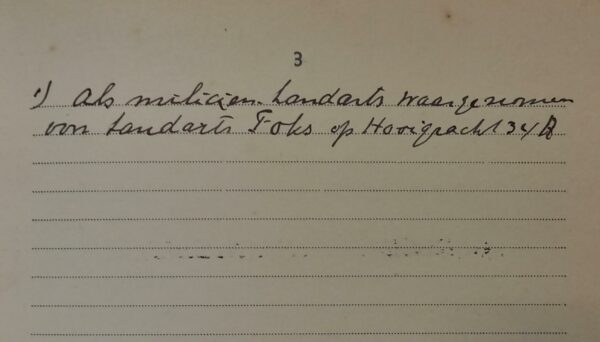 3
1) als milicien-tandarts waargenomen
voor tandarts Foks op Hooigracht 34